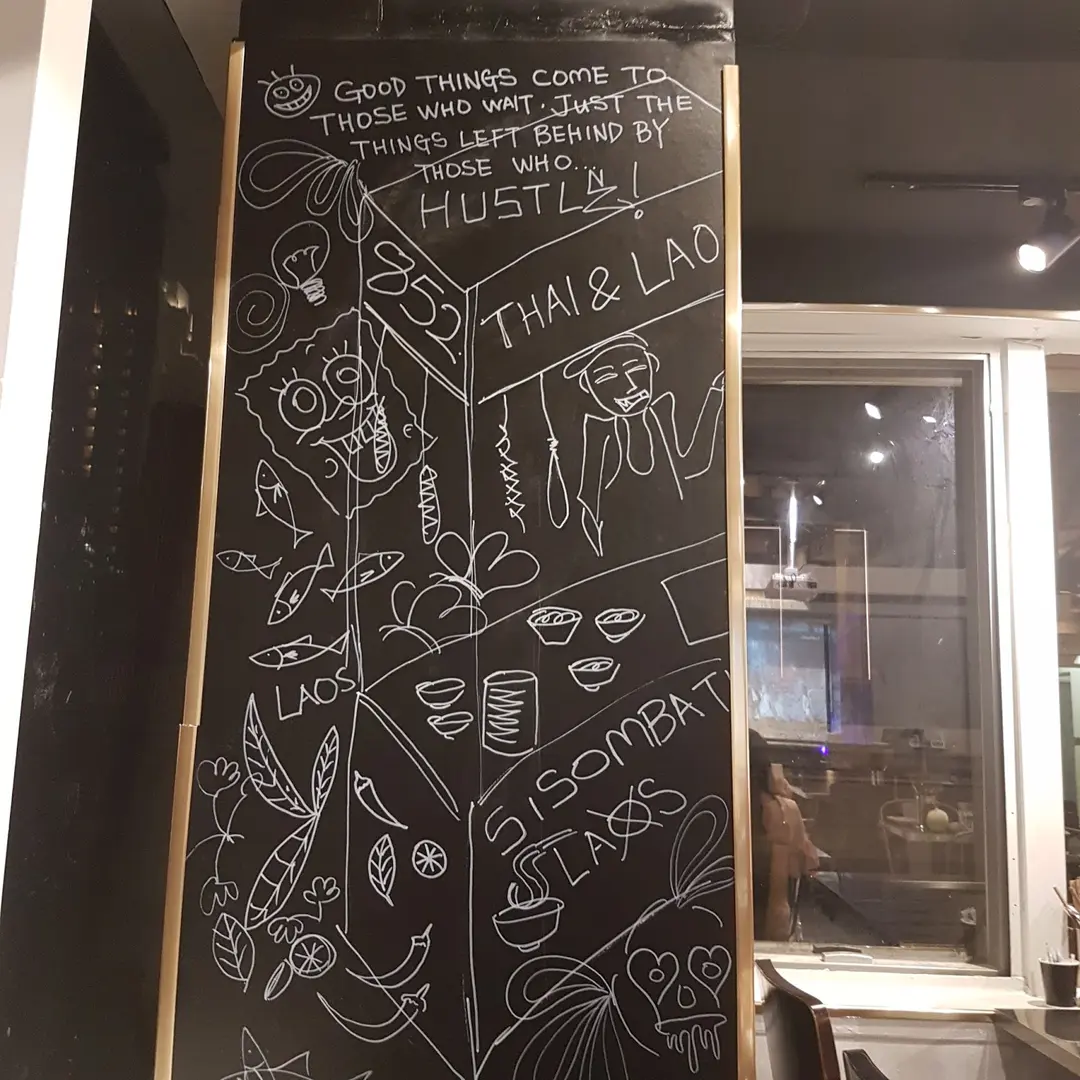 GOOD THINGS COME TO
THOSE WHO WAIT. JUST THE
THINGS LEFT BEHIND BY
THOSE WHO...
HUSTLE!
852
THAI & LAO
LAOS
SISOMBAT
LAOS